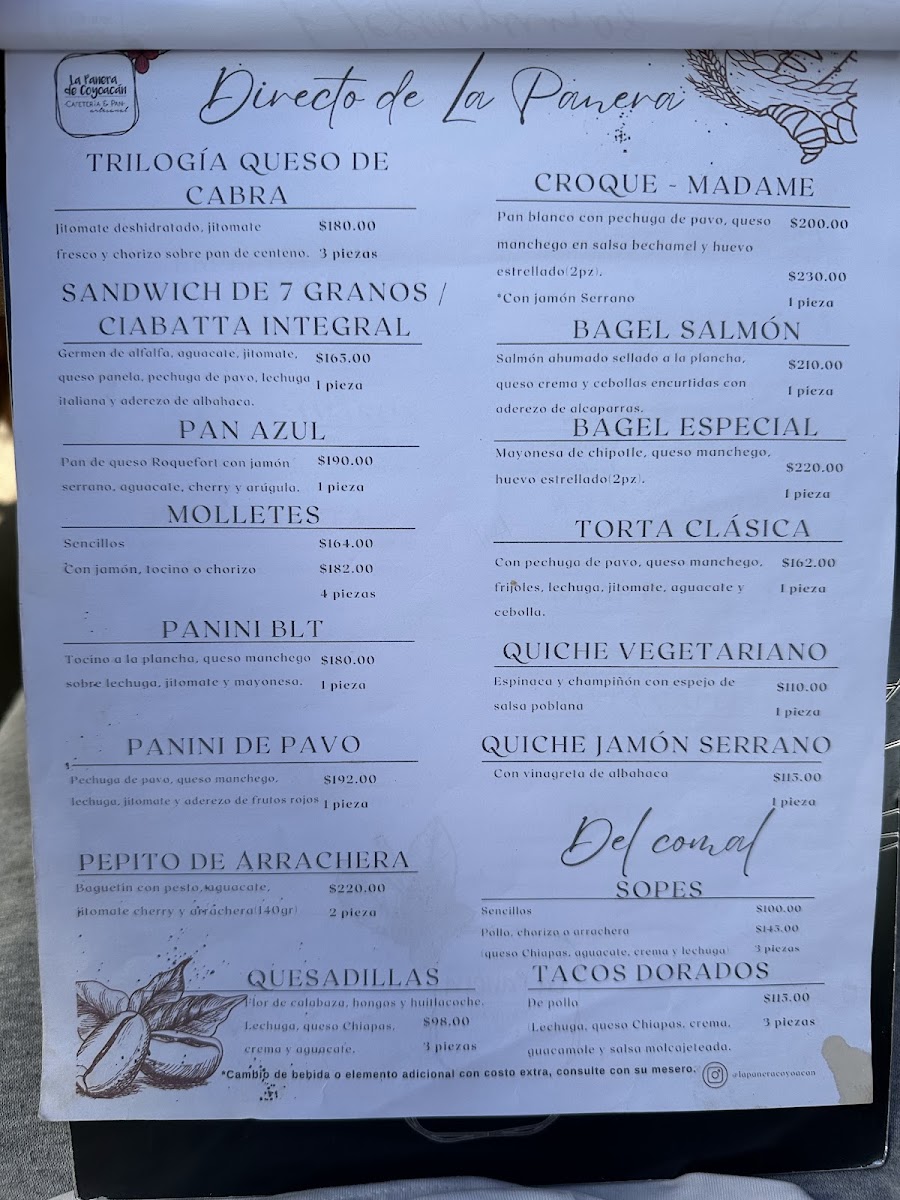 La Panera
de Coyoacán
-CAFETERÍA & PAN-
artesanal
Directo de La Panera
TRILOGÍA QUESO DE
CABRA
Jitomate deshidratado, jitomate $180.00
fresco y chorizo sobre pan de centeno. 3 piezas
SANDWICH DE 7 GRANOS /
CIABATTA INTEGRAL
Germen de alfalfa, aguacate, jitomate, $165.00
queso panela, pechuga de pavo, lechuga 1 pieza
italiana y aderezo de albahaca.
PAN AZUL
Pan de queso Roquefort con jamón $190.00
serrano, aguacate, cherry y arúgula. 1 pieza
MOLLETES
Sencillos $164.00
Con jamón, tocino o chorizo $182.00
4 piezas
PANINI BLT
Tocino a la plancha, queso manchego $180.00
sobre lechuga, jitomate y mayonesa. 1 pieza
PANINI DE PAVO
Pechuga de pavo, queso manchego, $192.00
lechuga, jitomate y aderezo de frutos rojos 1 pieza
PEPITO DE ARRACHERA
Baguetin con pesto, aguacate, $220.00
jitomate cherry y arrachera(140gr) 2 pieza
QUESADILLAS
Flor de calabaza, hongos y huitlacoche.
Lechuga, queso Chiapas, $98.00
crema y aguacate. 3 piezas
CROQUE - MADAME
Pan blanco con pechuga de pavo, queso $200.00
manchego en salsa bechamel y huevo
estrellado(2pz). $230.00
*Con jamón Serrano 1 pieza
BAGEL SALMÓN
Salmón ahumado sellado a la plancha, $210.00
queso crema y cebollas encurtidas con 1 pieza
aderezo de alcaparras.
BAGEL ESPECIAL
Mayonesa de chipotle, queso manchego, $220.00
huevo estrellado(2pz). 1 pieza
TORTA CLÁSICA
Con pechuga de pavo, queso manchego, $162.00
frijoles, lechuga, jitomate, aguacate y 1 pieza
cebolla.
QUICHE VEGETARIANO
Espinaca y champiñón con espejo de $110.00
salsa poblana 1 pieza
QUICHE JAMÓN SERRANO
Con vinagreta de albahaca $115.00
1 pieza
Del comal
SOPES
Sencillos $100.00
Pollo, chorizo o arrachera $145.00
(queso Chiapas, aguacate, crema y lechuga) 3 piezas
TACOS DORADOS
De pollo $115.00
(Lechuga, queso Chiapas, crema, 3 piezas
guacamole y salsa molcajeteada.
*Cambio de bebida o elemento adicional con costo extra, consulte con su mesero.
@lapaneracoyoacan